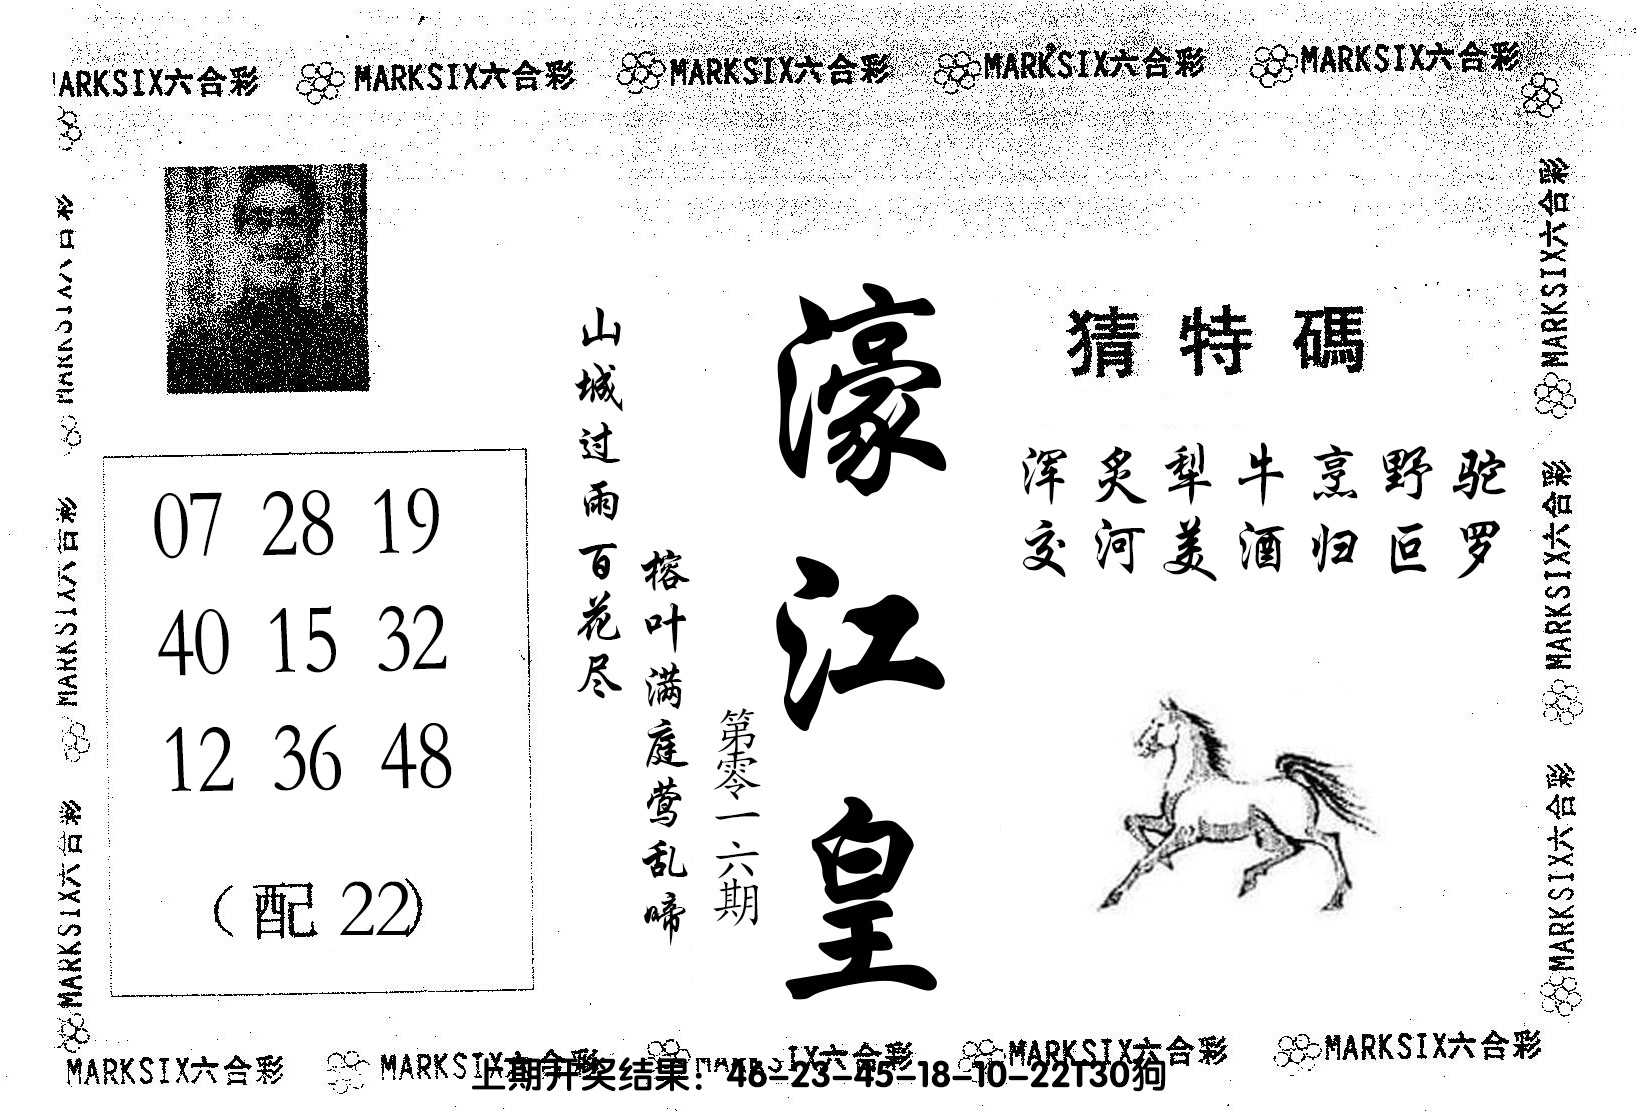 MARKSIX六合彩 MARKSIX六合彩 MARKSIX六合彩 MARKSIX六合彩 MARKSIX六合彩
猜特碼
浑炙犁牛烹野驼
交河美酒归叵罗
濠江皇
第零一六期
山城过雨百花尽
榕叶满庭莺乱啼
07 28 19
40 15 32
12 36 48
（配 22）
MARKSIX六合彩
MARKSIX六合彩
MARKSIX六合彩
MARKSIX六合彩
MARKSIX六合彩
MARKSIX六合彩
MARKSIX六合彩 MARKSIX六合彩 MARKSIX六合彩 MARKSIX六合彩
上期开奖结果：46-23-45-18-10-22T30狗